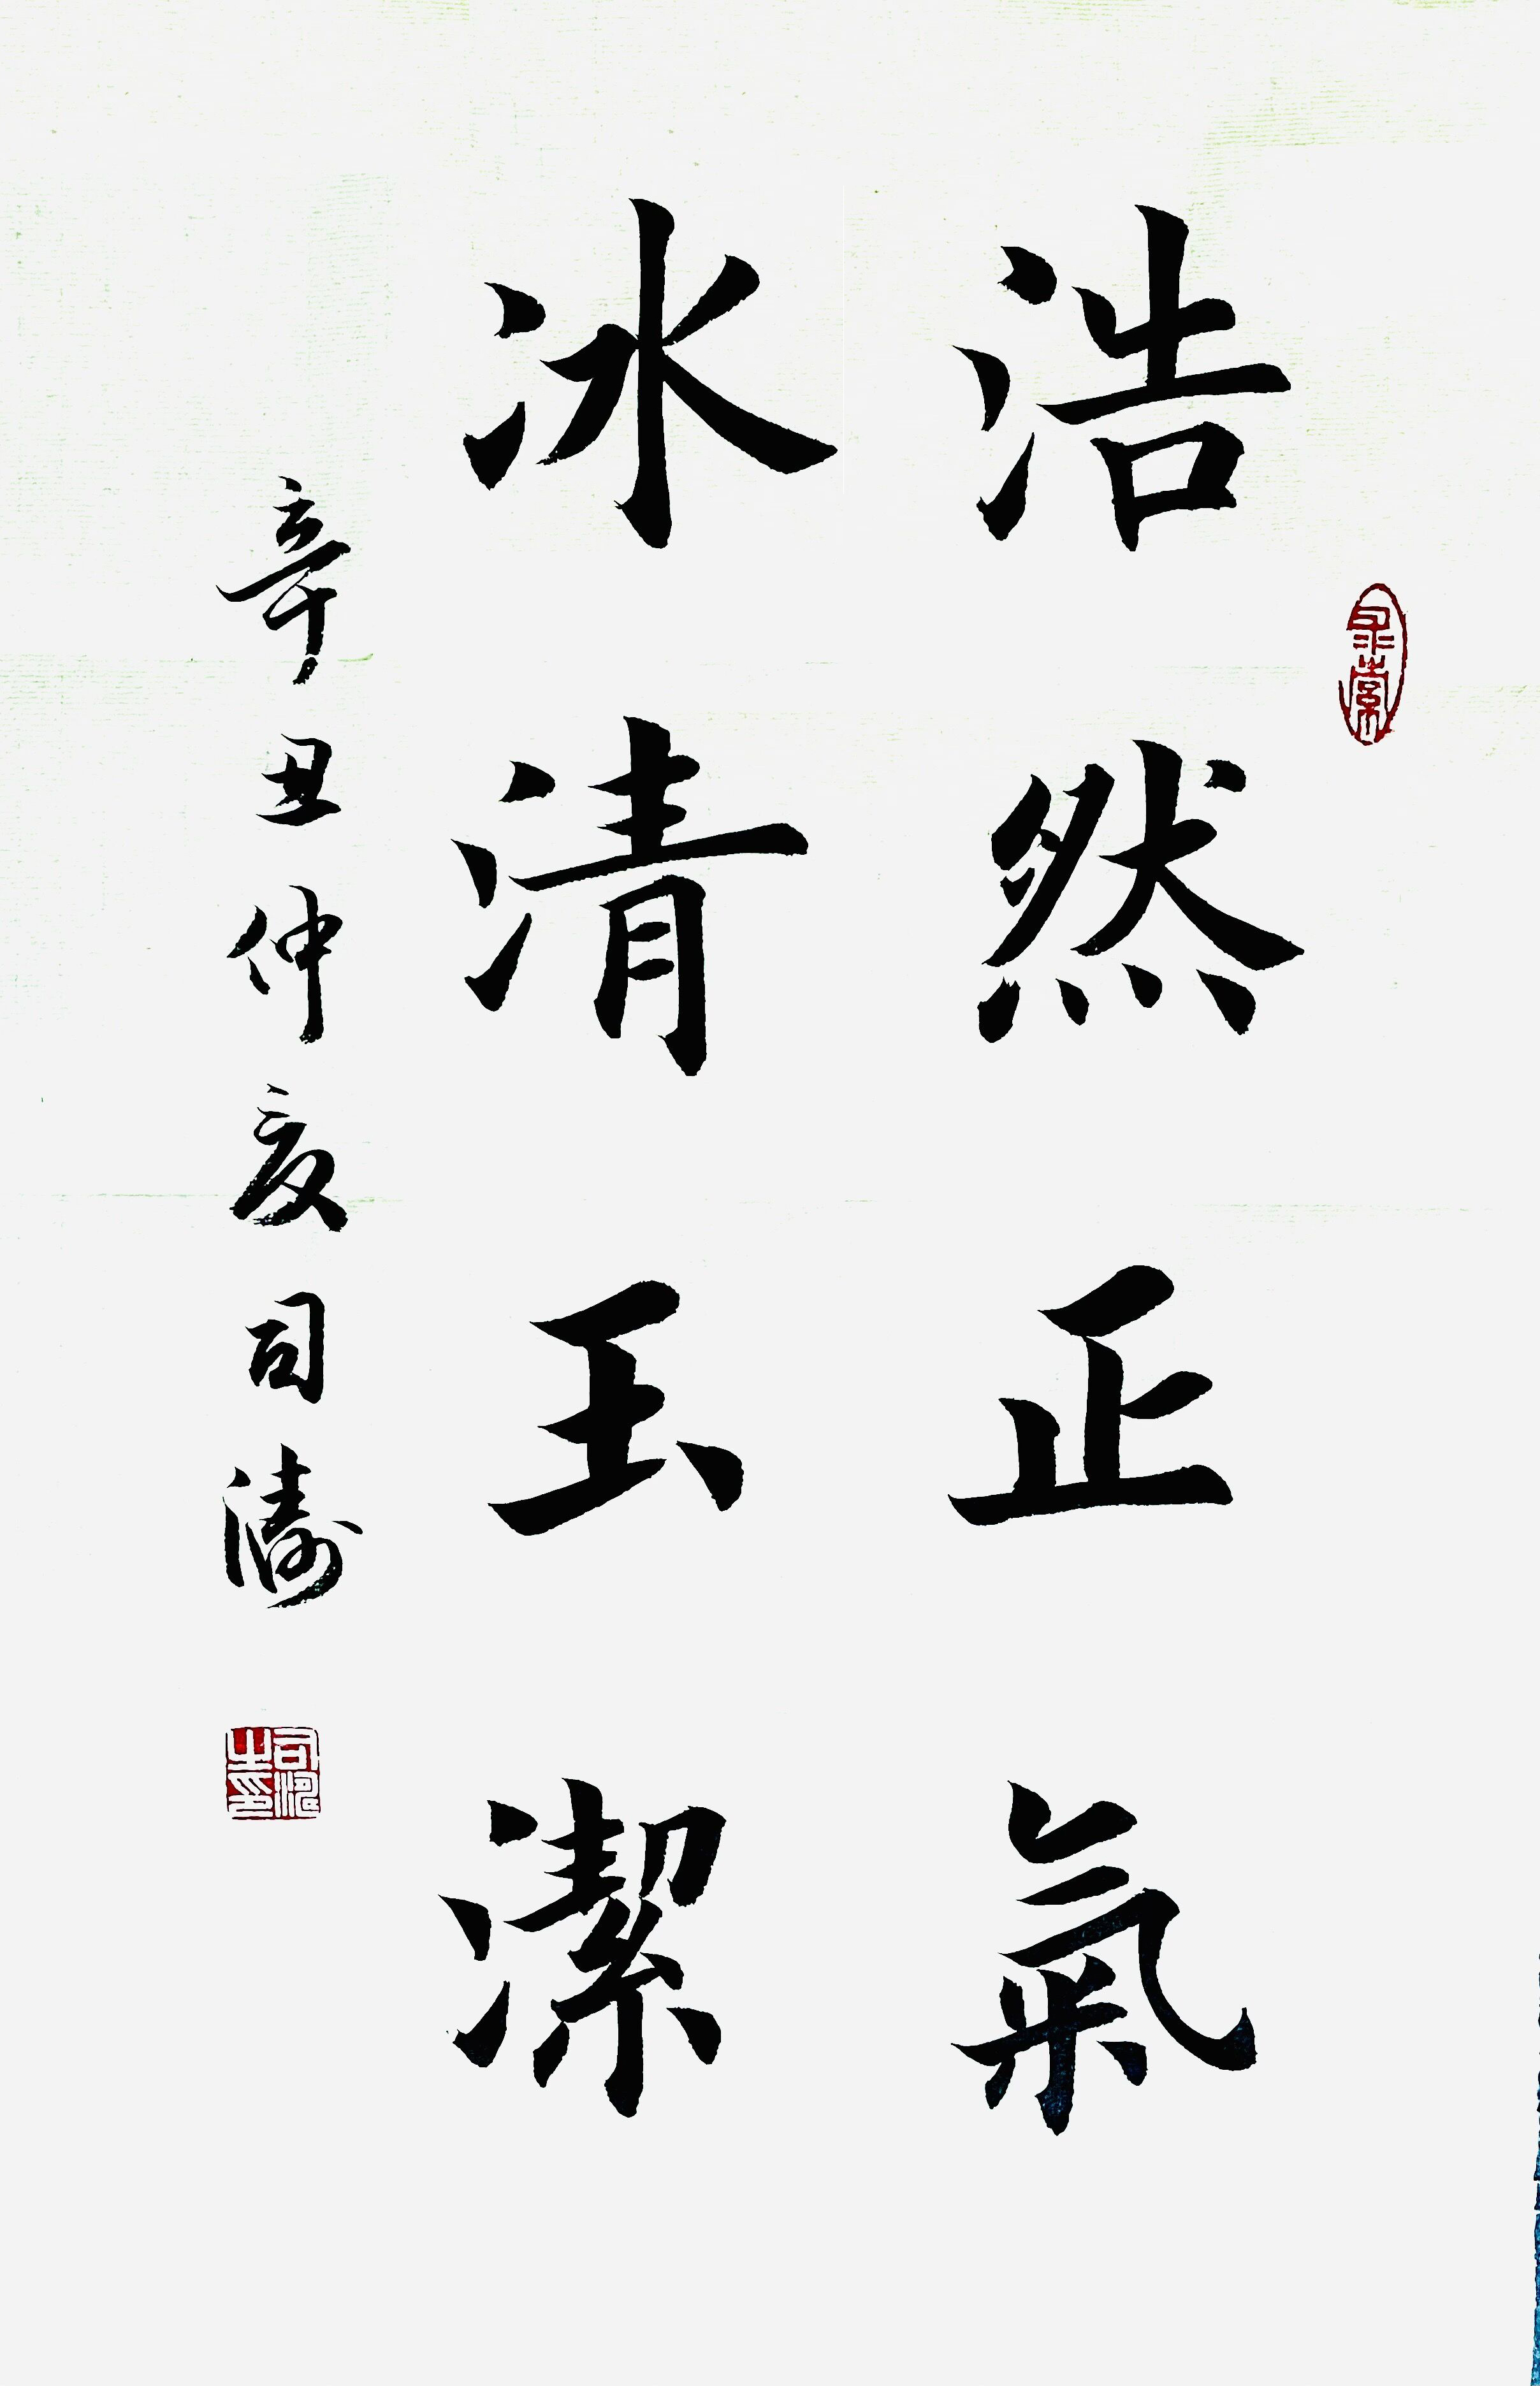 浩然正氣
冰清玉潔
辛丑仲夏司濤